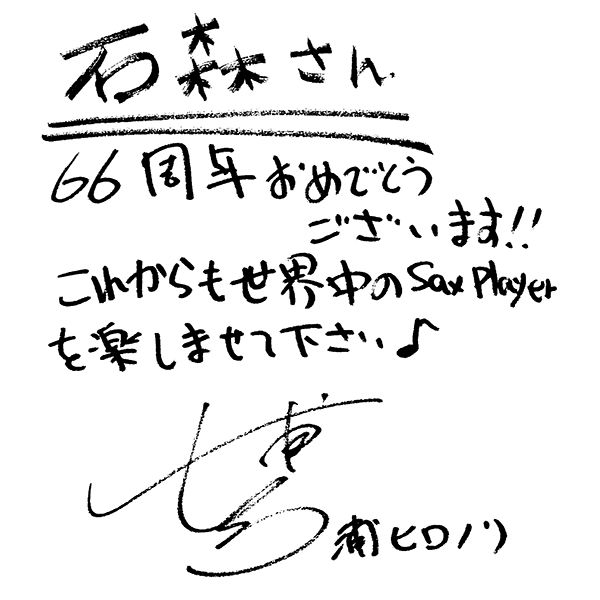 石森さん
66周年おめでとう
ございます!!
これからも世界中のSax Player
を楽しませて下さい♪
浦ヒロノリ